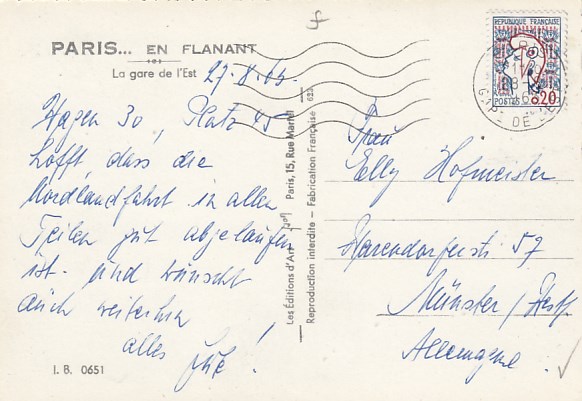 PARIS... EN FLANANT
La gare de l'Est
27.8.65
Wagen 30, Platz 45
hofft, dass die
Nordlandfahrt in allen
Teilen gut abgelaufen
ist. und wünscht
auch weiterhin
alles gute!
I. B. 0651
Les Éditions d'Art
Paris, 15, Rue Martel
Reproduction interdite - Fabrication Française
REPUBLIQUE FRANÇAISE
POSTES 0,20
GARE DE
Frau
Elly Hofmeister
Warendorferstr 57
Münster / Westf
Allemagne